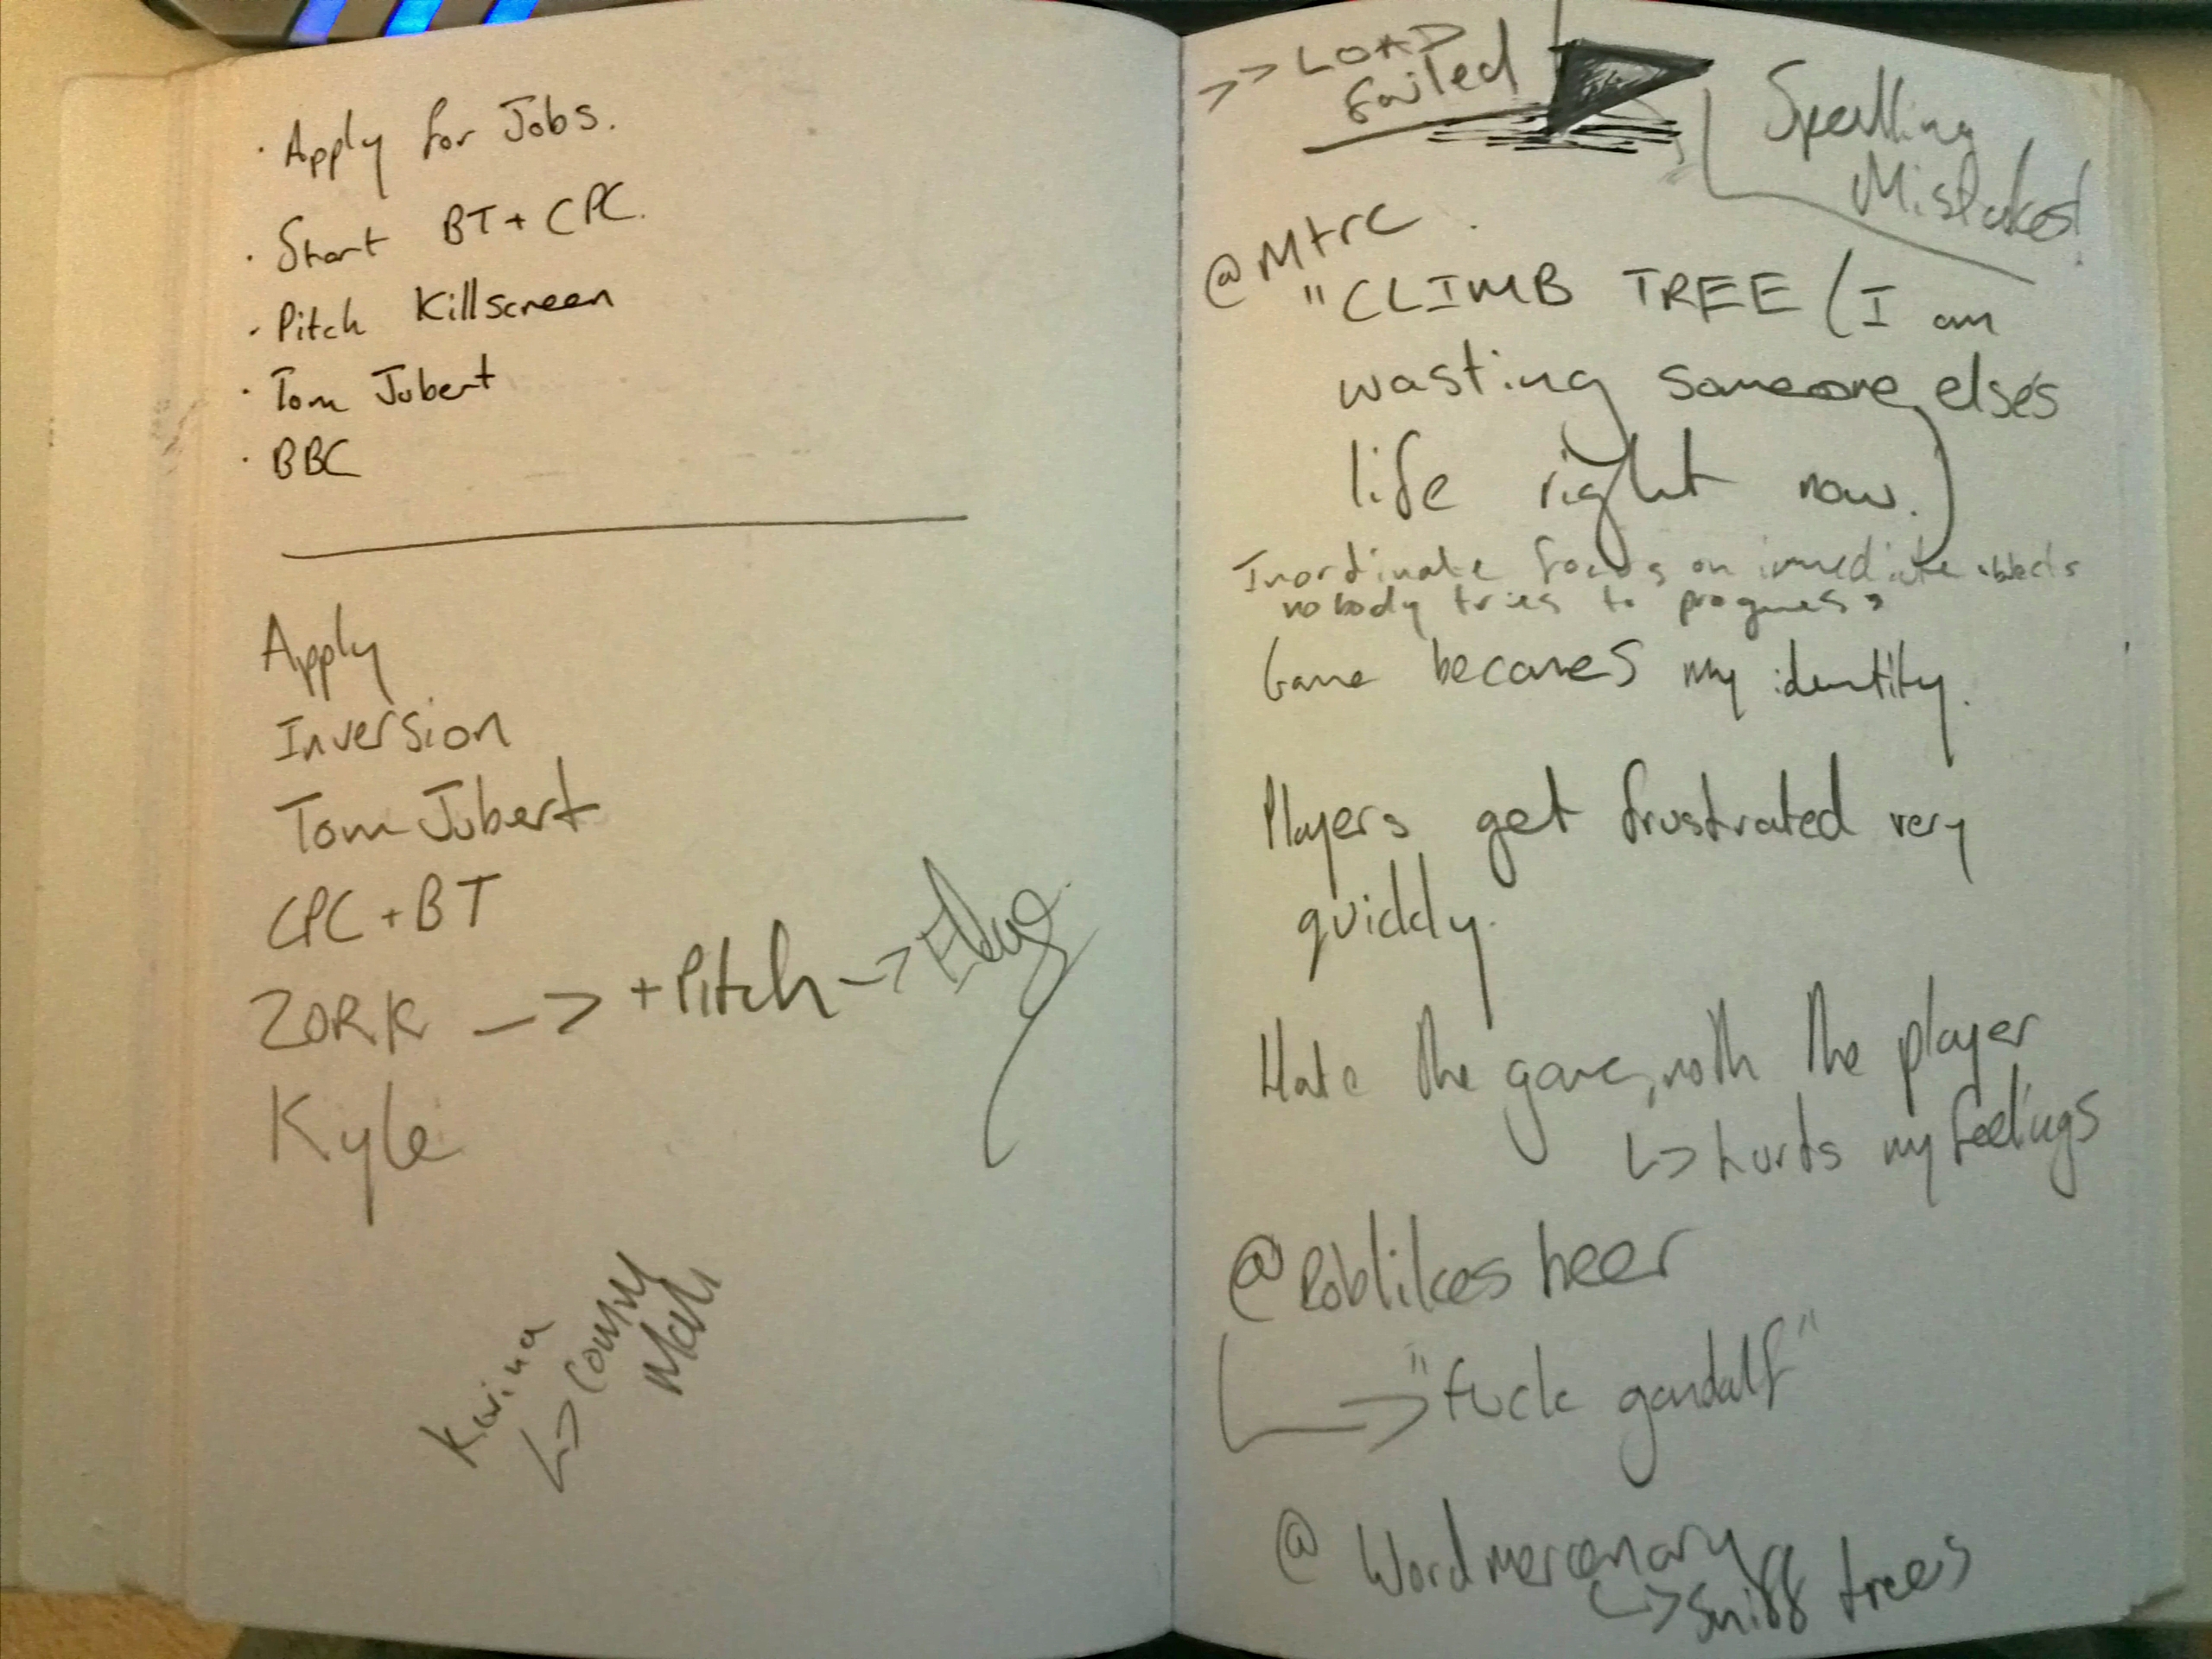 · Apply for Jobs.
· Start BT + CPC.
· Pitch Killscreen
· Tom Jubert
· BBC
Apply
Inversion
Tom Jubert
CPC + BT
ZORK -> + Pitch ->
Kyle
Karina
->
>> LOAD
failed
Spelling
Mistakes!
@Mtrc
"CLIMB TREE (I am
wasting someone else's
life right now.)
Inordinate focus on immediate objects
nobody tries to progress
Game becomes my identity.
Players get frustrated very
quickly.
Hate the game, noth the player
-> hurts my feelings
@Roblikesbeer
-> "fuck gandalf"
@Wordmercenary
-> Sniff trees